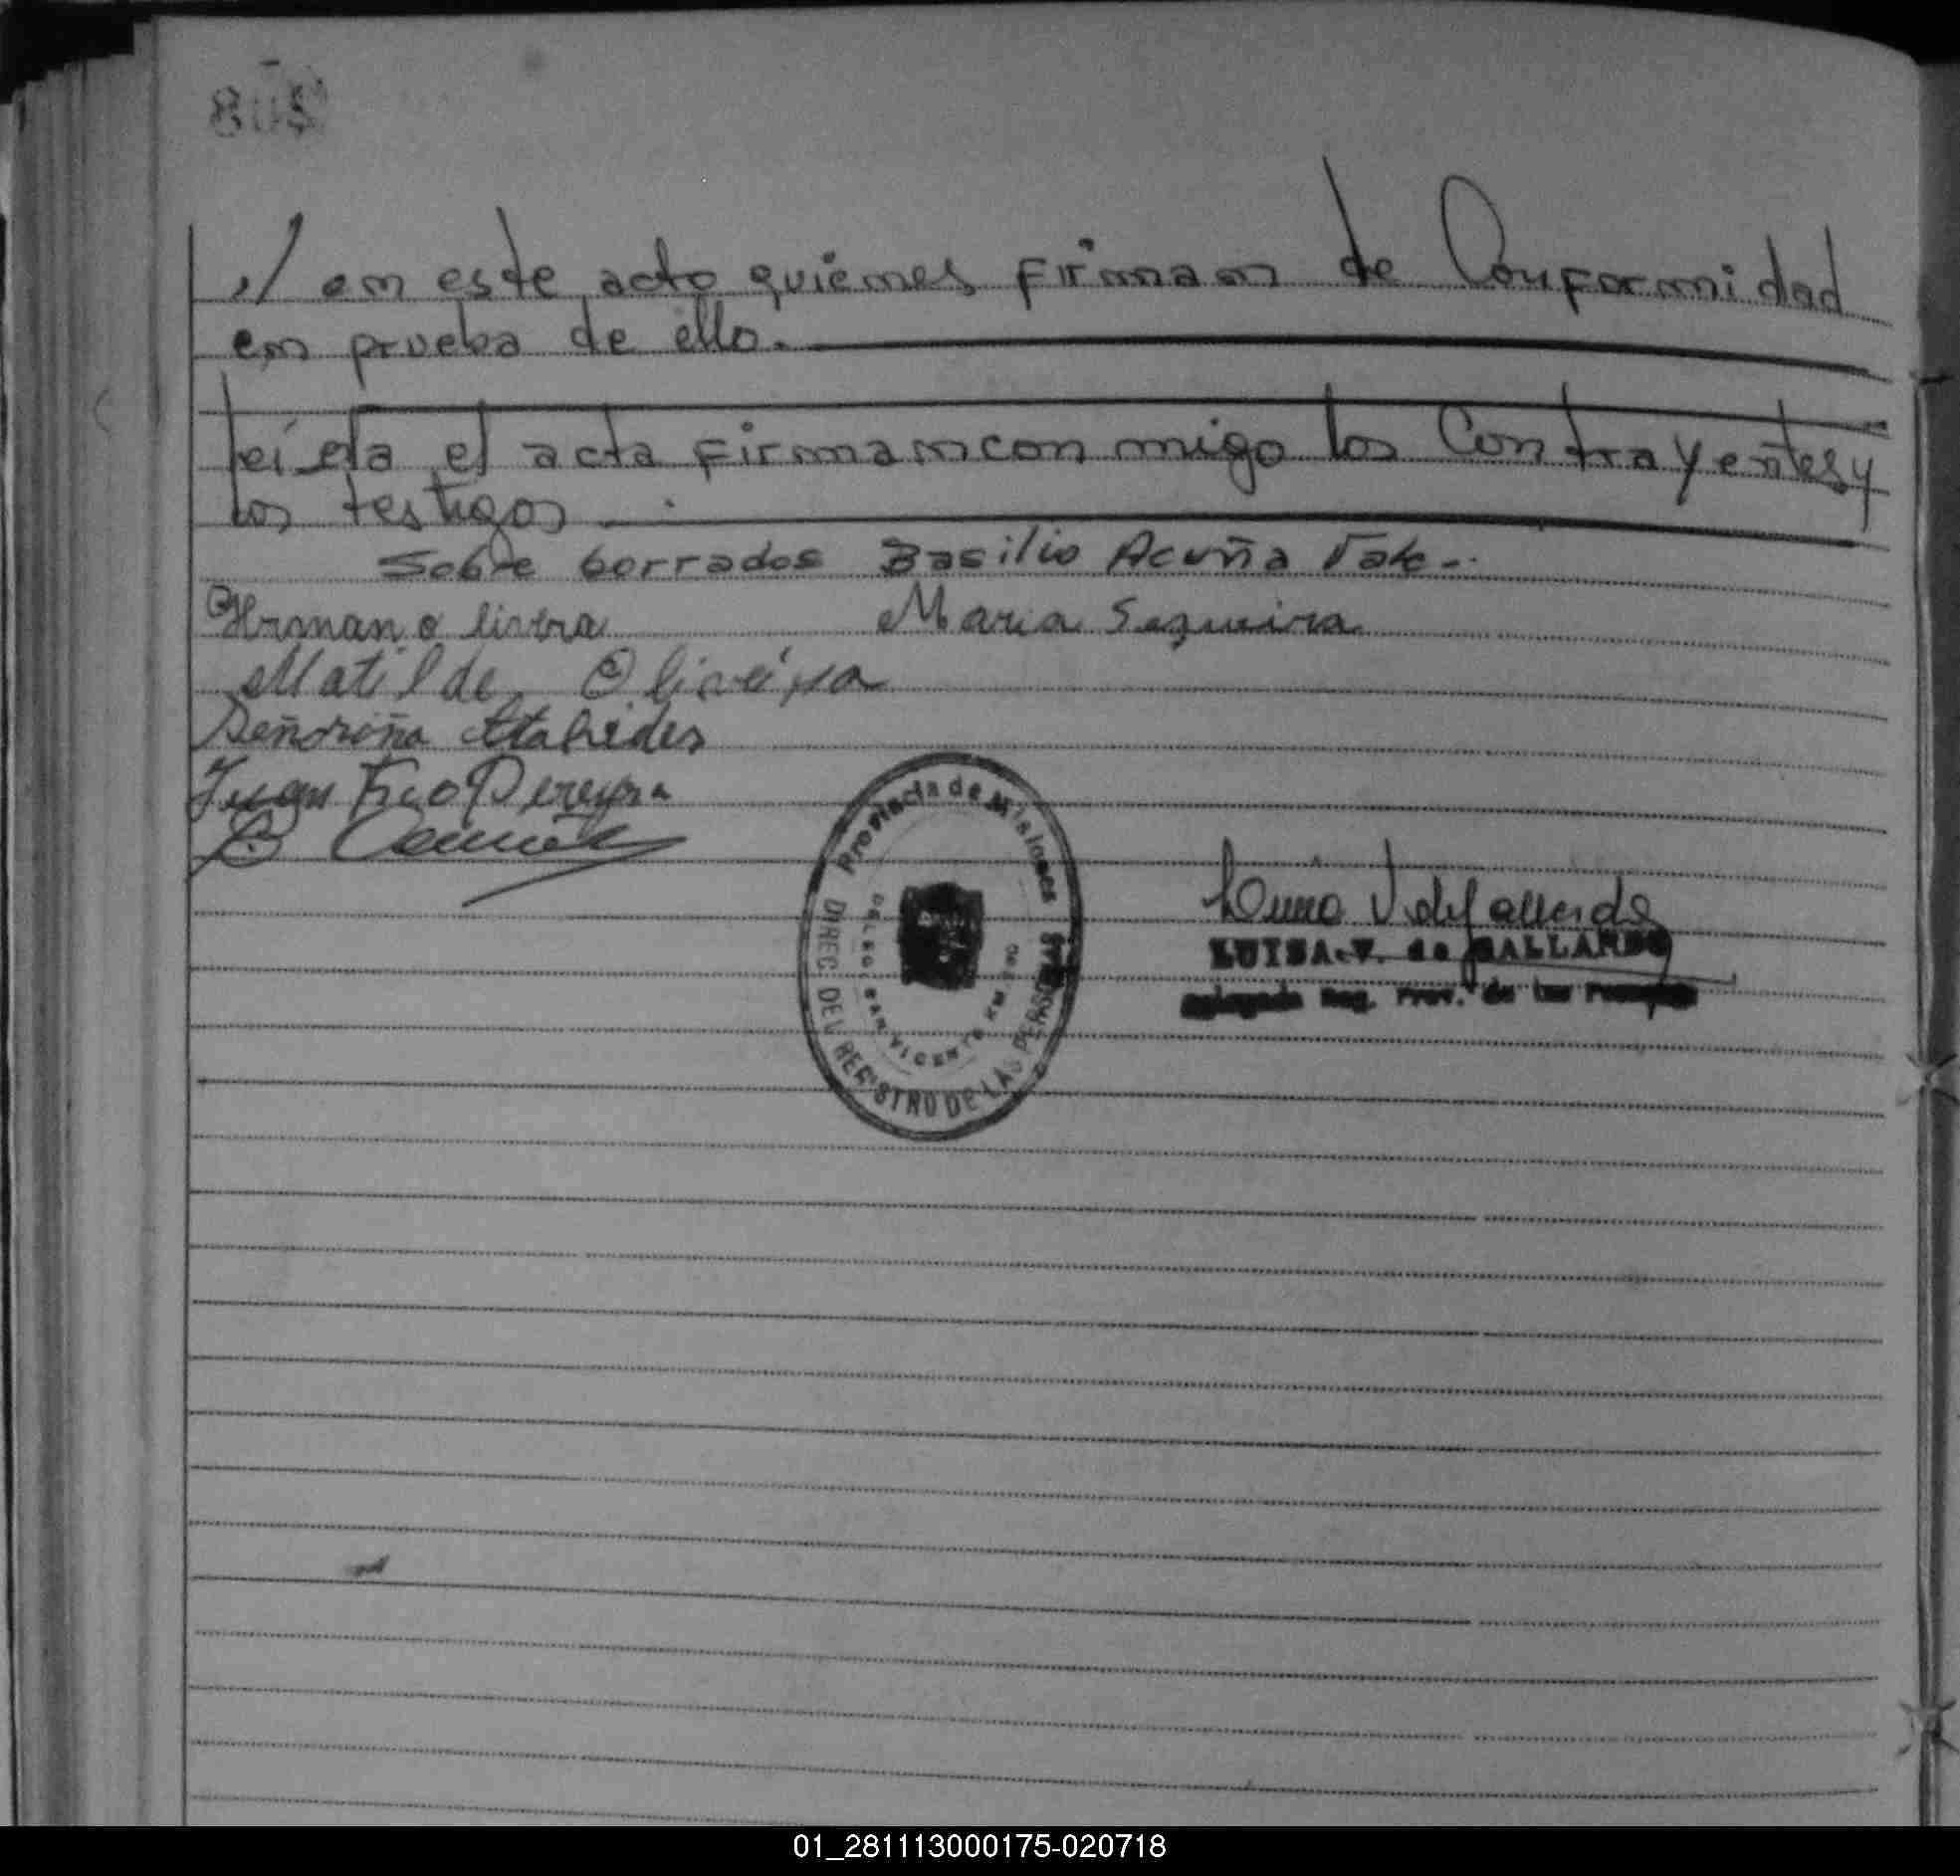 // en este acto quiénes firman de Conformidad
en prueba de ello.
leída el acta firman con migo los Contrayentes y
los testigos
Sobre borrados Basilio Acuña Vale.
Maria Sequeira
Matilde Oliveira
Juan Fco Pereyra
Provincia de Misiones
DIREC DEL REGISTRO DE LAS PERSONAS
LUISA V. de GALLARDO
Reg. Prov. de las Personas
01_281113000175-020718